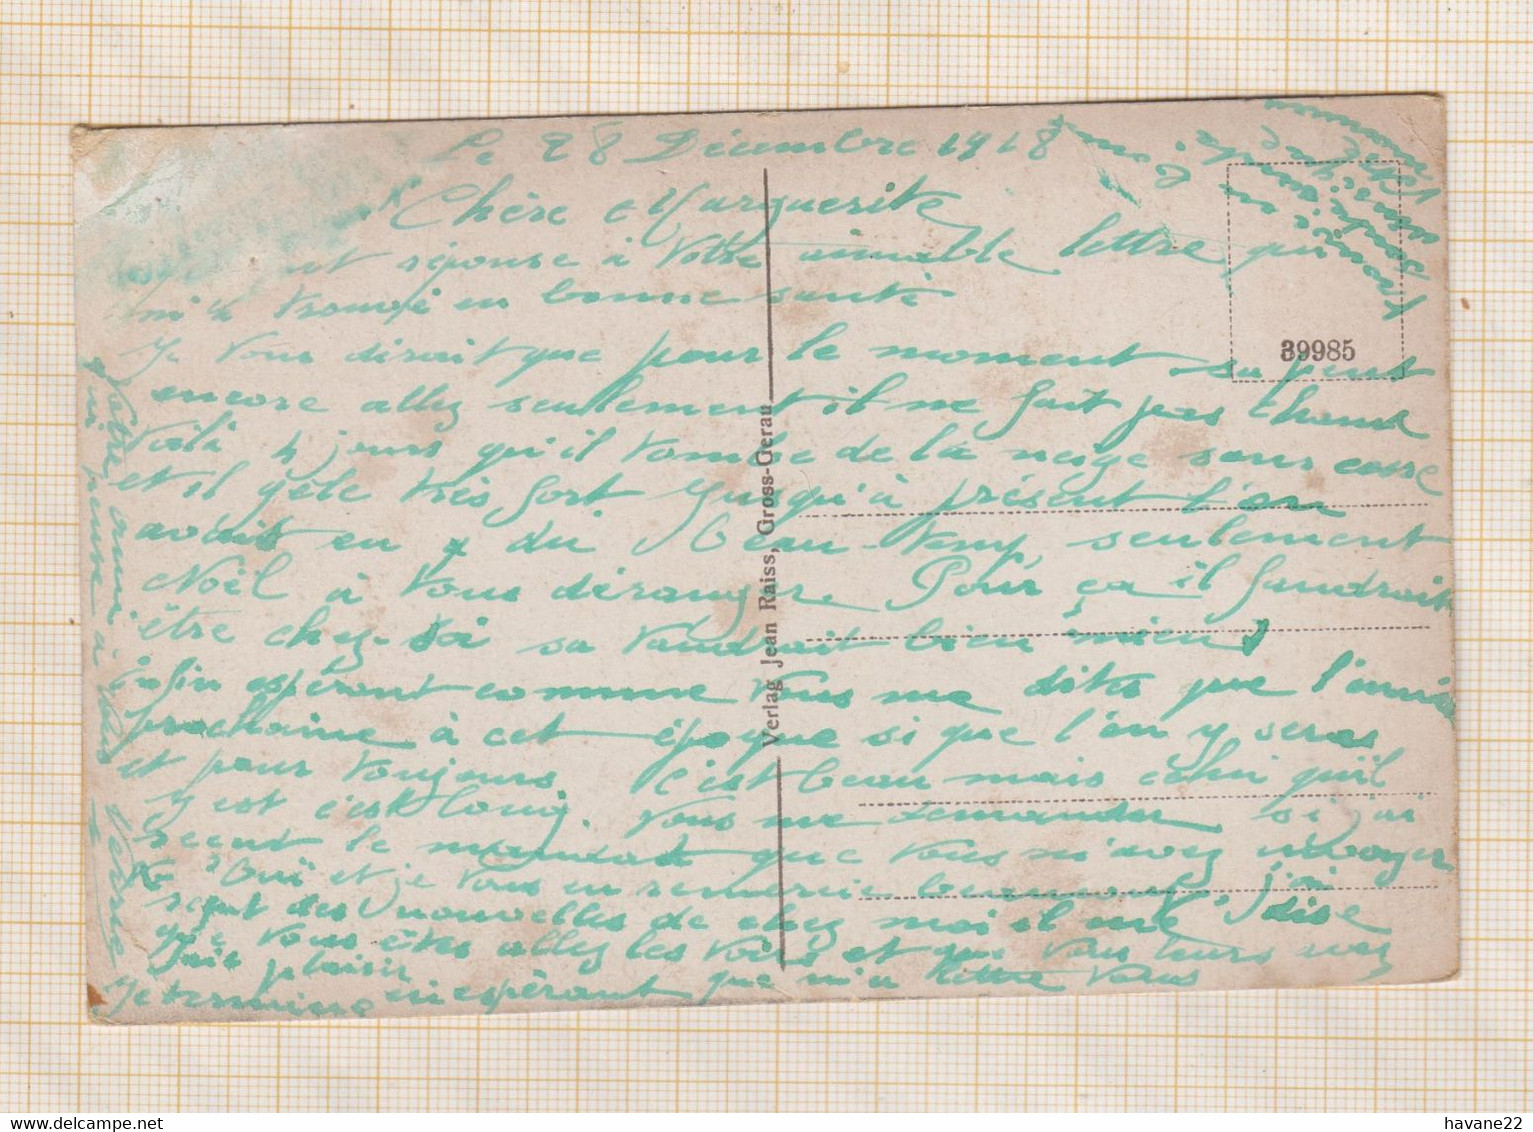 Le 28 Décembre 1918
Chère Marguerite
réponse à Votre aimable lettre qui
m'a trouvé en bonne santé
Je Vous dirait que pour le moment sa peut
encore allez seulement il ne fait pas chaud
Voilà 4 jours qu'il tombe de la neige sans cesse
et il gèle très fort Jusqu'à présent l'on
avait eu du beau temp, seulement
Noël à Vous déranger. Pour ça il faudrait
être chez-soi sa vaudrait bien mieux
Enfin espérant comme Vous me dites que l'année
prochaine à cet époque si que l'on y seras
et pour toujours c'est beau mais celui qu'il
y est c'est long. Vous me demander si j'ai
recut le mandat que Vous m'avez envoyer
Oui et je Vous en remercie beaucoup j'ai
reput des nouvelles de chez moi il me dise
que Vous êtes allez les voir et que Vous leurs avez
fait plaisir
Je termine en espérant que m'a lettre Vous
Votre ami
qui pense à Vous
39985
Verlag Jean Raiss, Gross-Gerau
havane22